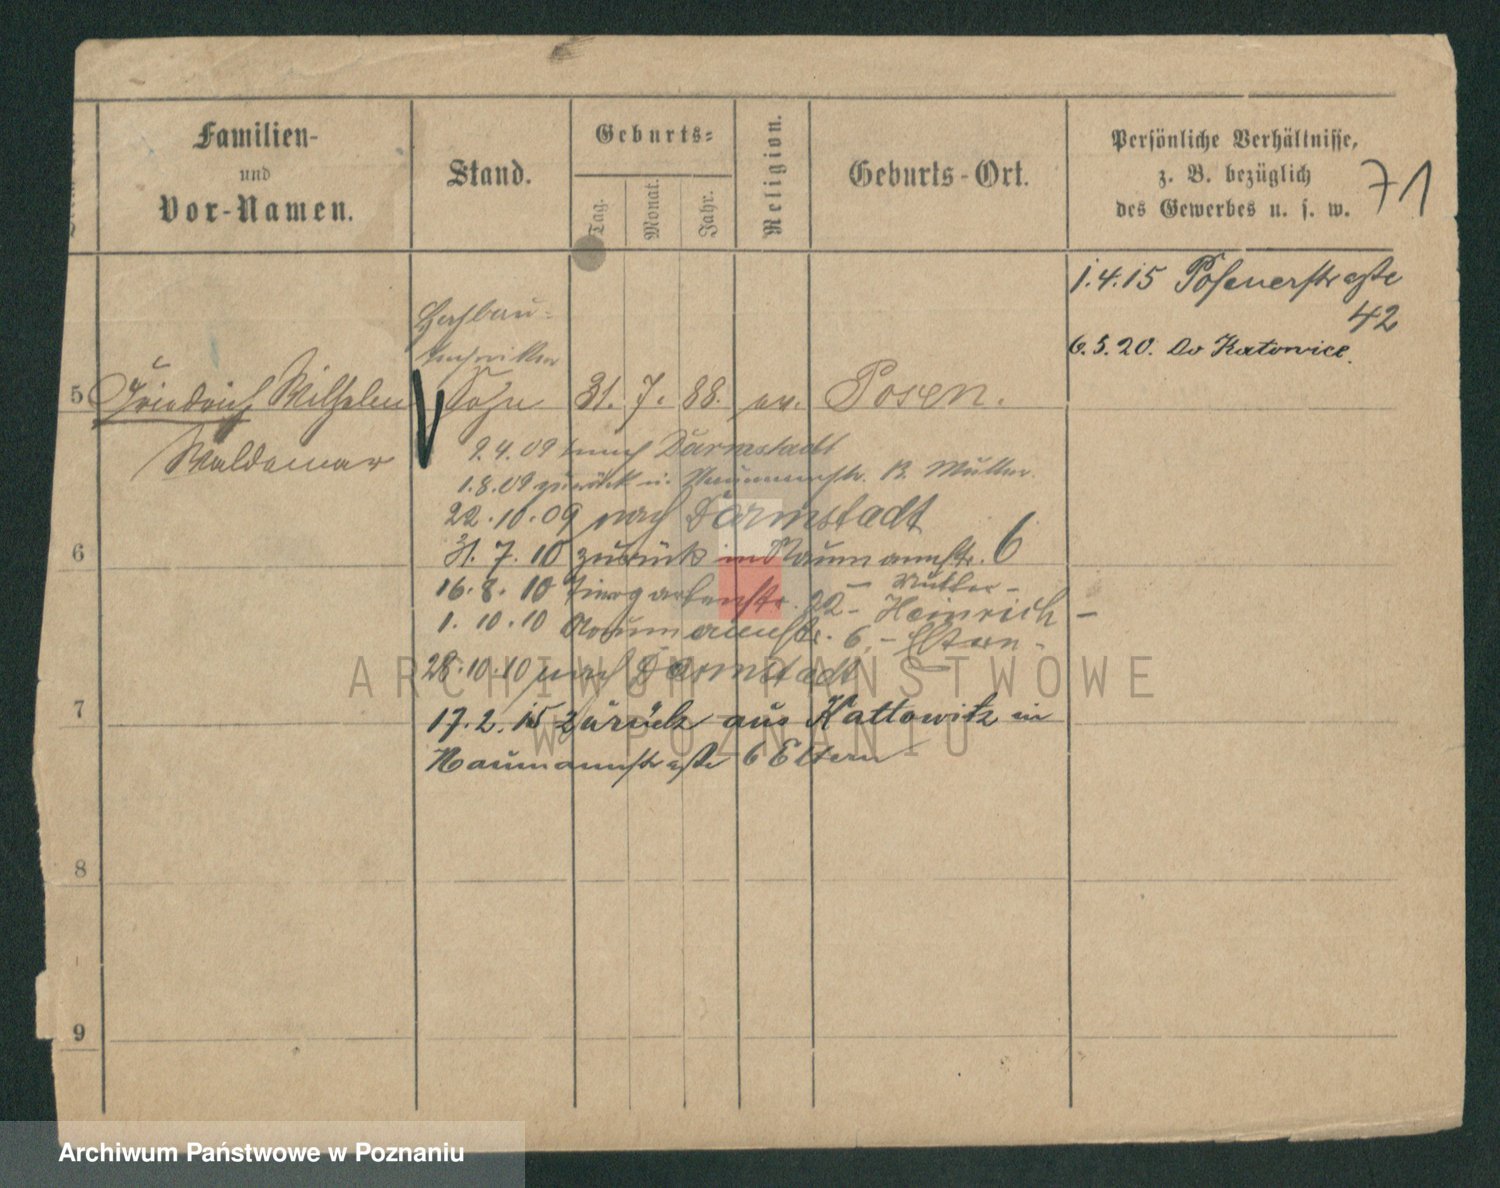 Familien-
und
Vor-Namen.
Stand.
Geburts-
Tag.
Monat.
Jahr.
Religion.
Geburts-Ort.
Persönliche Verhältnisse,
z. B. bezüglich
des Gewerbes u. s. w.
71
1.4.15 Posenerstraße
42
6.5.20. Do Katowice.
Hochbau-
techniker
5 Friedrich Wilhelm Sohn 31. 7. 88. ev. Posen.
Waldemar
9.4.09 nach Darmstadt
1.8.09 zurück n. Naumannstr. b. Mutter.
22.10.09 nach Darmstadt
6 31.7.10 zurück in Naumannstr. 6
– Mutter –
16.8.10 Tiergartenstr. 22 – Heinrich –
1.10.10 Naumannstr. 6. – Eltern –
28.10.10 nach Darmstadt
ARCHIWUM PAŃSTWOWE
7 17.2.15 zurück aus Kattowitz in
W POZNANIU
Naumannstraße 6 Eltern
8
9
Archiwum Państwowe w Poznaniu